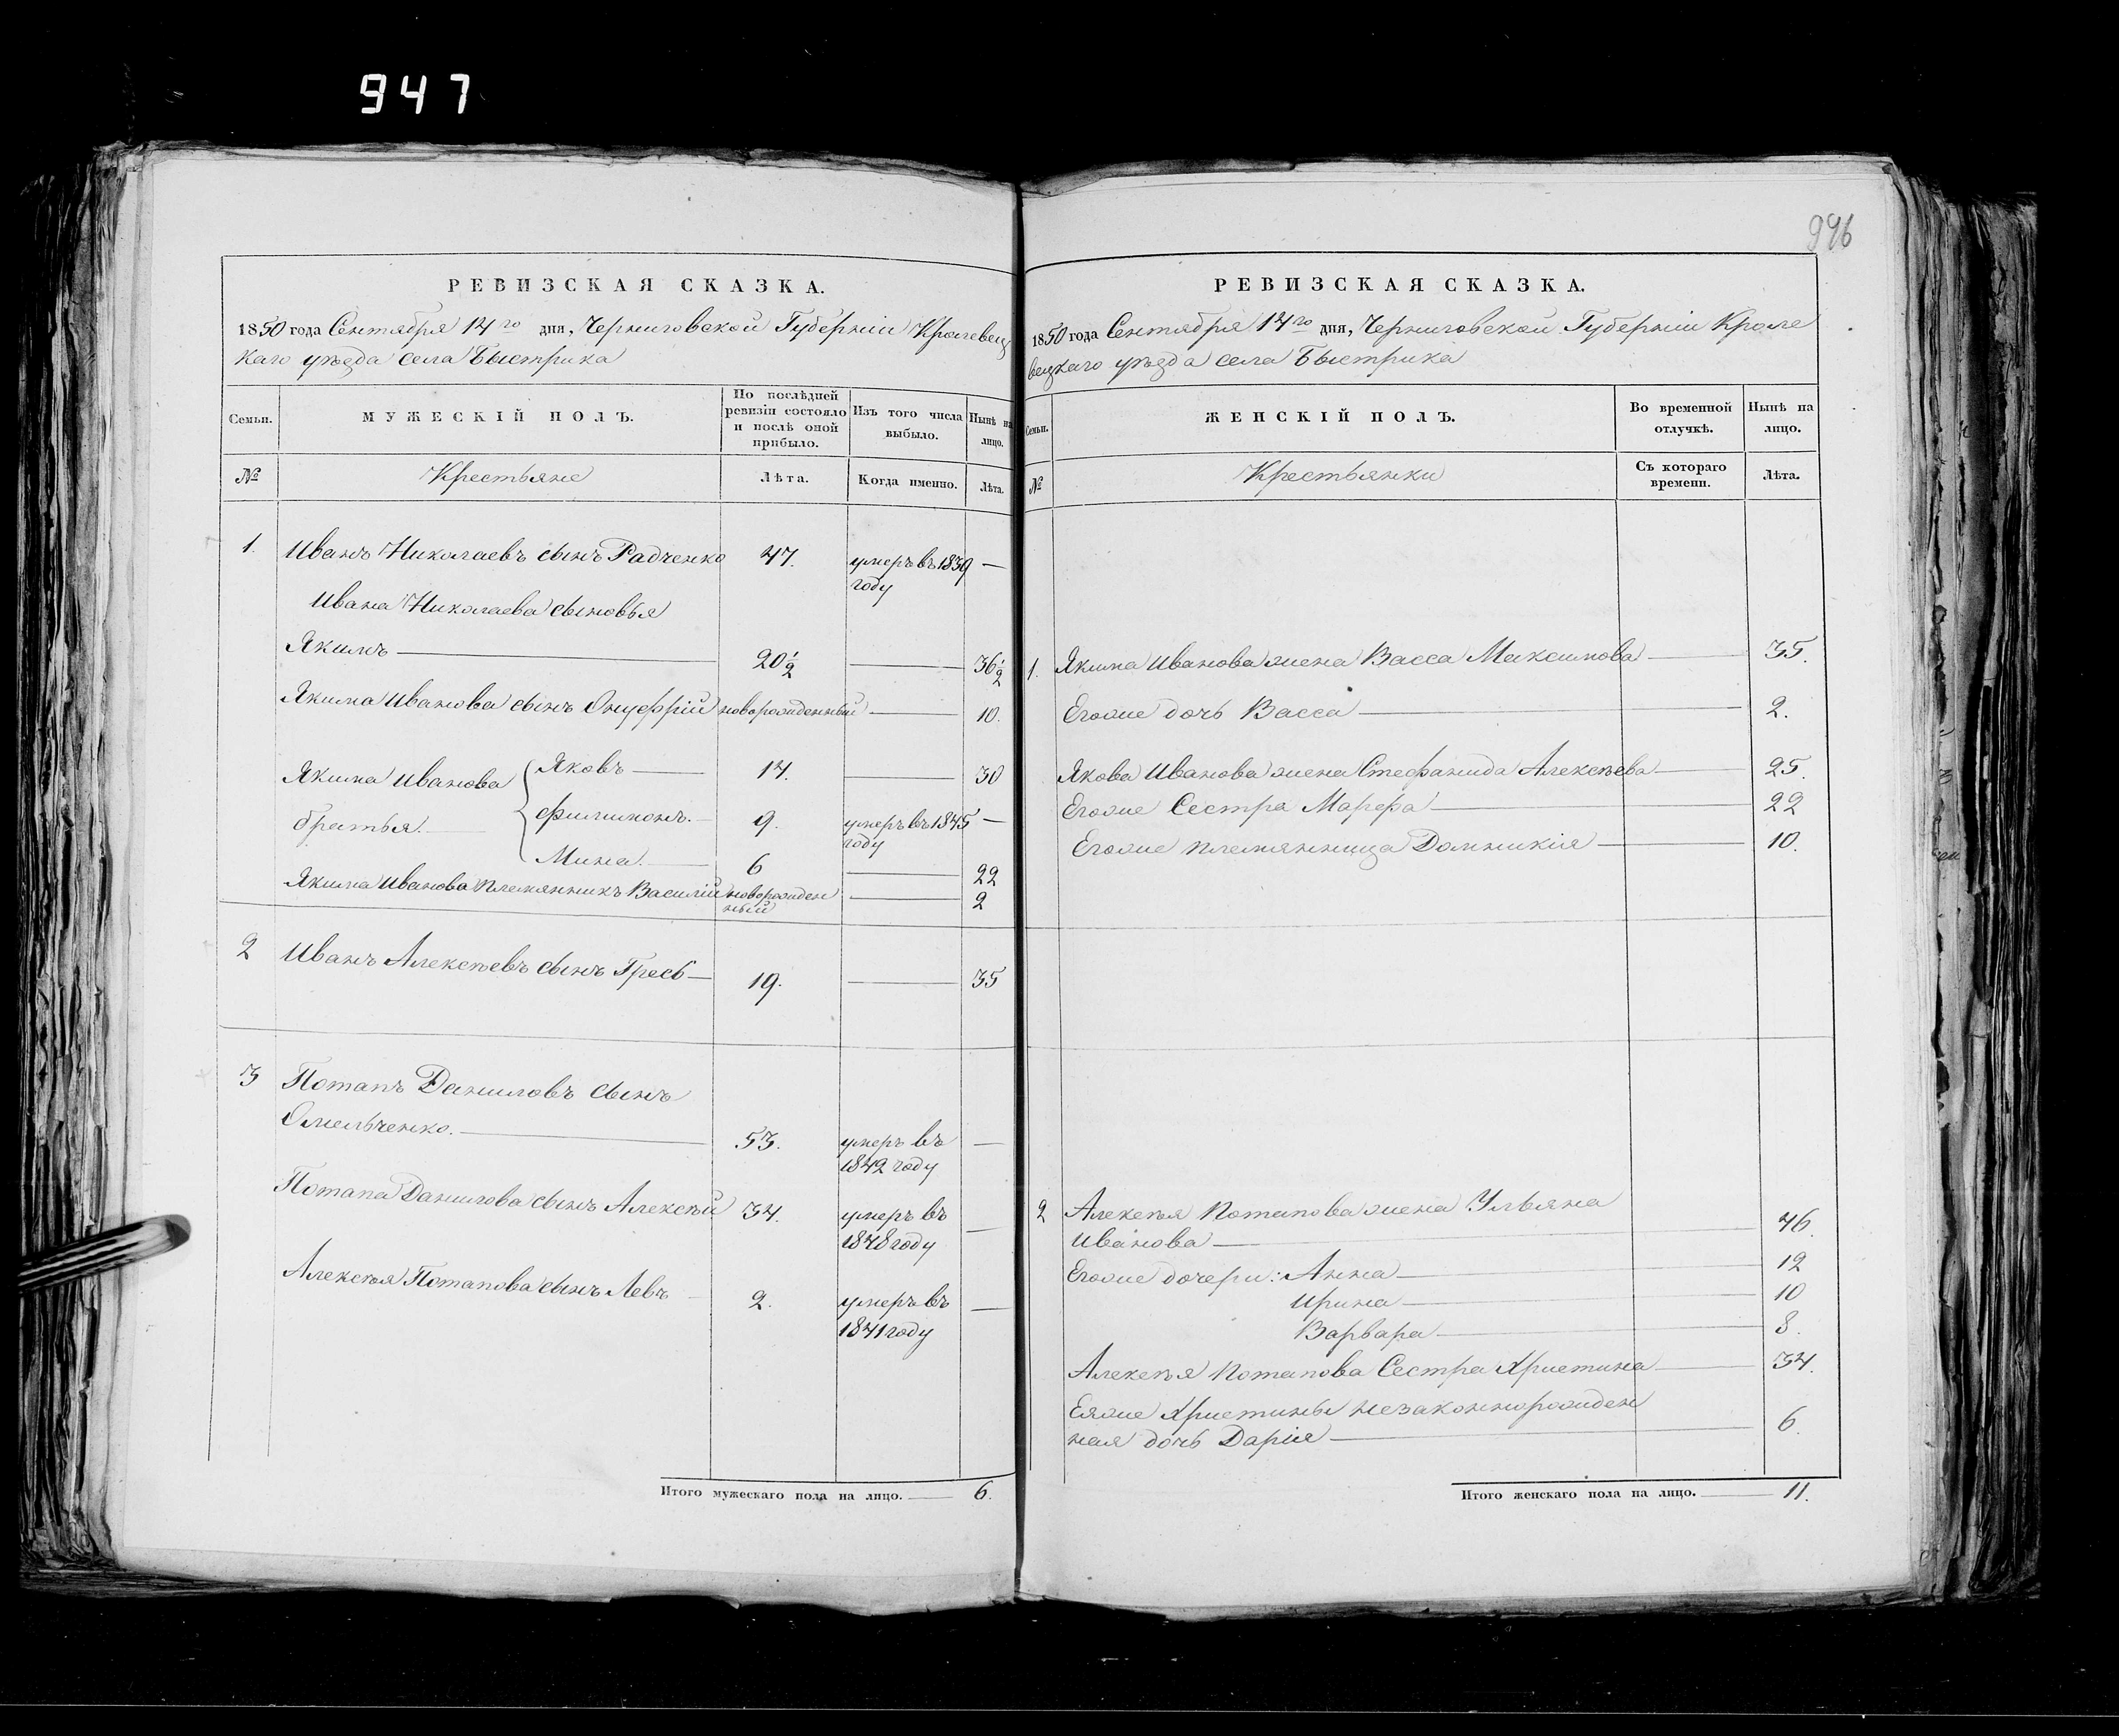 947
РЕВИЗСКАЯ СКАЗКА.
1850 года Сентября 14го дня, Черниговской Губерніи Кролевец
каго уѣзда села Быстрика
Семьи.
МУЖЕСКІЙ ПОЛЪ.
По послѣдней
ревизіи состояло
и послѣ оной
прибыло.
Изъ того числа
выбыло.
Нынѣ на
лицо.
№
Крестьяне
Лѣта.
Когда именно.
Лѣта.
1. Иванъ Николаевъ сынъ Радченко 47. умеръ въ 1839 —
году
Ивана Николаева сыновья
Якимъ — 20½ — 36½
Якима Иванова сынъ Онуфрій новорожденный — 10.
Якима Иванова Яковъ — 14. — 30
братья. Филимонъ. — 9. умеръ въ 1845 —
году
Мина. — 6 — 22
Якима Иванова племянникъ Василій новорожден — 2
ный
2 Иванъ Алексѣевъ сынъ Гресь — 19. — 35
3 Потапъ Даниловъ сынъ
Омельченко. — 53. умеръ въ —
1842 году
Потапа Данилова сынъ Алексѣй 34. умеръ въ —
1848 году
Алексѣя Потапова сынъ Левъ — 2. умеръ въ —
1841 году
Итого мужескаго пола на лицо. — 6.
996
РЕВИЗСКАЯ СКАЗКА.
1850 года Сентября 14го дня, Черниговской Губерніи Кроле
вецкаго уѣзда села Быстрика
Семьи.
ЖЕНСКІЙ ПОЛЪ.
Во временной
отлучкѣ.
Нынѣ на
лицо.
№
Крестьянки
Съ котораго
времени.
Лѣта.
1. Якима Иванова жена Васса Максимова — 35.
Егоже дочь Васса — 2.
Якова Иванова жена Стефанида Алексѣева — 25.
Егоже Сестра Марфа — 22
Егоже племянница Домникія — 10.
2 Алексѣя Потапова жена Ульяна
Иванова — 46.
Егоже дочери: Анна — 12
Ирина — 10
Варвара — 8.
Алексѣя Потапова Сестра Христина — 34.
Еяже Христины незаконнорожден
ная дочь Дарія — 6.
Итого женскаго пола на лицо. — 11.